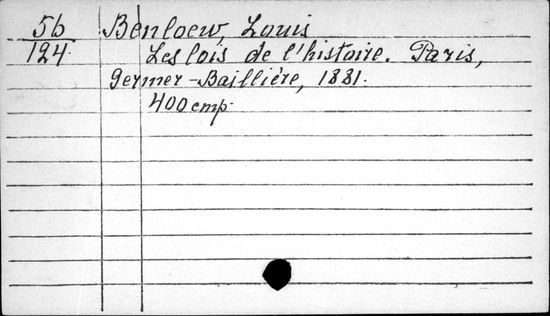 56 Benloew, Louis
124 Les lois de l'histoire. Paris,
Germer-Baillière, 1881.
400 стр.